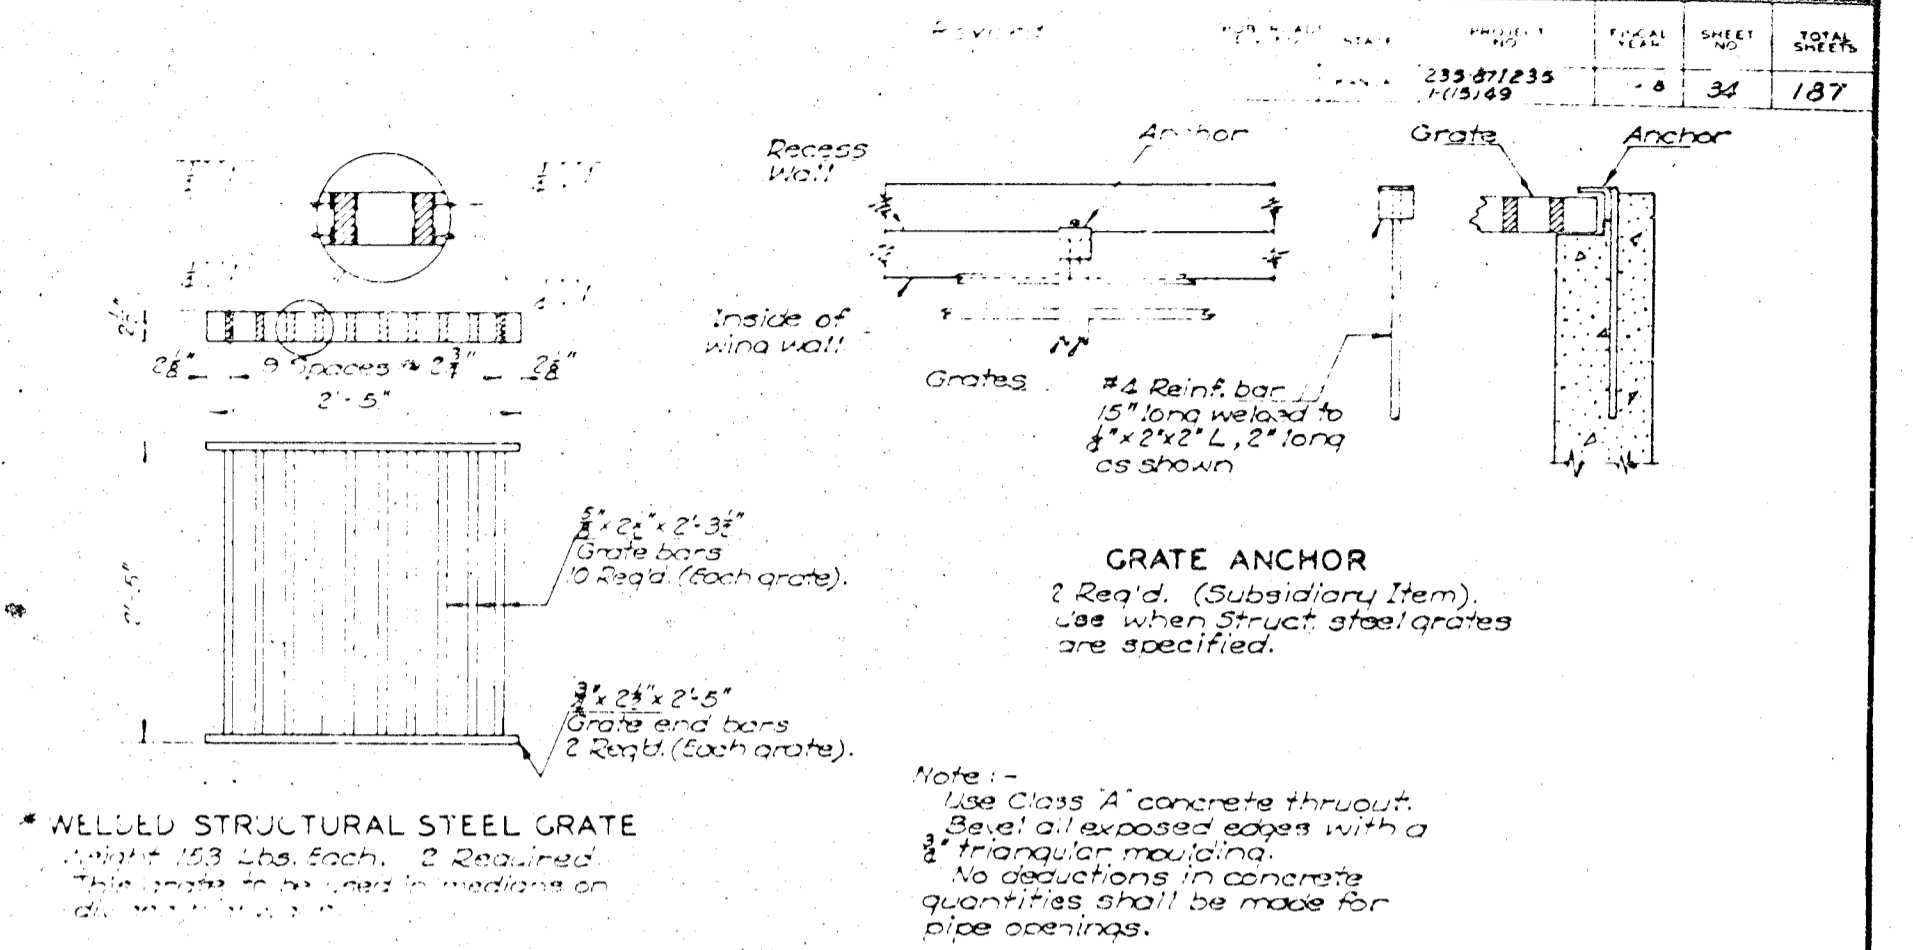 PROJECT NO
FISCAL YEAR
SHEET NO
TOTAL SHEETS
34
187
Recess
Wall
Anchor
Grate
Anchor
Inside of
wing wall
Grates
#4 Reinf. bar
15" long welded to
"x2"x2" L, 2" long
as shown
2 1/8"
9 Spaces 2 3/4"
2 1/8"
2'-5"
2'-5"
5/8" x 2 1/2" x 2'-3 1/2"
Grate bars
10 Req'd. (Each grate).
3/4" x 2 1/2" x 2'-5"
Grate end bars
2 Req'd. (Each grate).
GRATE ANCHOR
2 Req'd. (Subsidiary Item).
Use when Struct. steel grates
are specified.
* WELDED STRUCTURAL STEEL GRATE
Weight 153 Lbs. Each. 2 Required
This grate to be used in medians on
Note :-
Use Class "A" concrete thruout.
Bevel all exposed edges with a
3/4" triangular moulding.
No deductions in concrete
quantities shall be made for
pipe openings.